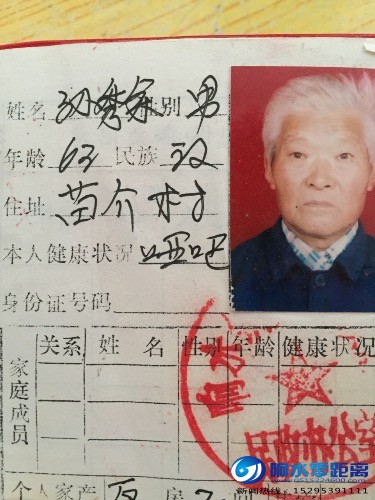 姓名 孙秀余 性别 男
年龄 63 民族 汉
住址 苗介村
本人健康状况 哑吧
身份证号码
家庭成员
关系 姓名 性别 年龄 健康状况
响水
民政办公室
个人家产 房
响水零距离
新闻热线：15295391111